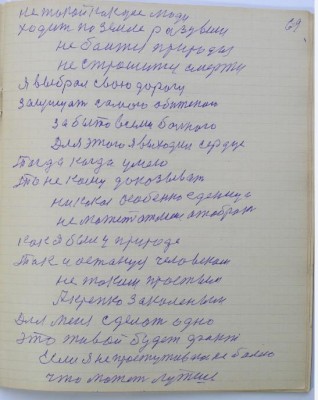 не такой как все люди
69
ходит по земле разувши
не боится природы
не страшится смерти
Я выбрал свою дорогу
защищать самого обиженого
забытово всеми больного
Для этого я выходил сердце
Тогда когда умело
То не кому доказывать
никакая особенно сденица
не может отобрать
как я был у природе
Так и остануся человеком
не таким простым
А крепко закаленым
Для меня сделать одно
Это живой будет факт
Если я не простуживаюсь не болею
что может лутше